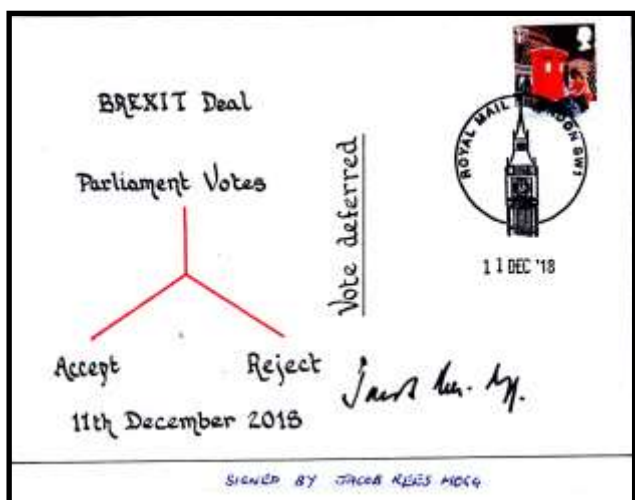 BREXIT Deal
Parliament Votes
Accept
Reject
11th December 2018
Vote deferred
ROYAL MAIL LONDON SW1
11 DEC '18
SIGNED BY JACOB REES MOGG